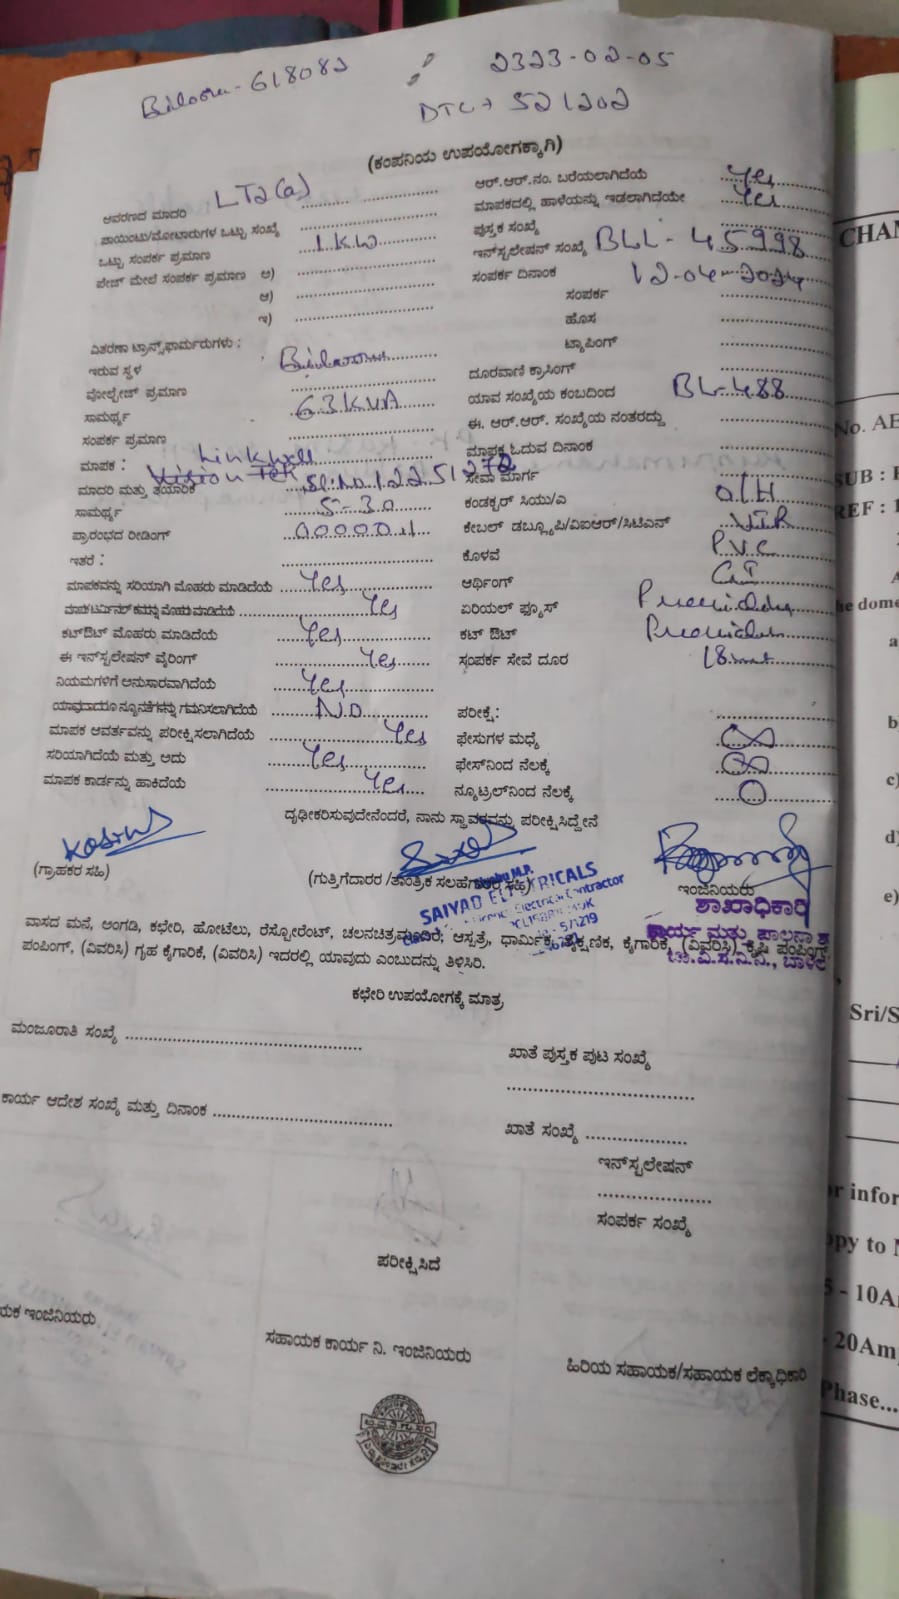 Biloor - 618082
2323-02-05
DTC → 521202
(ಕಂಪನಿಯ ಉಪಯೋಗಕ್ಕಾಗಿ)
ಆವರಣದ ಮಾದರಿ LT2(a) ............
ಆರ್.ಆರ್.ನಂ. ಬರೆಯಲಾಗಿದೆಯೆ Yes
ಪಾಯಿಂಟು/ಮೋಟಾರುಗಳ ಒಟ್ಟು ಸಂಖ್ಯೆ ............
ಮಾಪಕದಲ್ಲಿ ಹಾಳೆಯನ್ನು ಇಡಲಾಗಿದೆಯೇ Yes
ಒಟ್ಟು ಸಂಪರ್ಕ ಪ್ರಮಾಣ 1 KW
ಪುಸ್ತಕ ಸಂಖ್ಯೆ
ಇನ್‌ಸ್ಟಲೇಷನ್ ಸಂಖ್ಯೆ BLL - 45998
ಪೇಜ್ ಮೇಲೆ ಸಂಪರ್ಕ ಪ್ರಮಾಣ ಅ) ............
ಸಂಪರ್ಕ ದಿನಾಂಕ 12-04-2024
ಆ) ............
ಸಂಪರ್ಕ ............
ಇ) ............
ಹೊಸ ............
ವಿತರಣಾ ಟ್ರಾನ್ಸ್‌ಫಾರ್ಮರುಗಳು :
ಟ್ಯಾಪಿಂಗ್ ............
ಇರುವ ಸ್ಥಳ
ದೂರವಾಣಿ ಕ್ರಾಸಿಂಗ್ ............
ವೋಲ್ಟೇಜ್ ಪ್ರಮಾಣ ............
ಯಾವ ಸಂಖ್ಯೆಯ ಕಂಬದಿಂದ BL-488
ಸಾಮರ್ಥ್ಯ 63 KVA
ಈ. ಆರ್.ಆರ್. ಸಂಖ್ಯೆಯ ನಂತರದ್ದು ............
ಸಂಪರ್ಕ ಪ್ರಮಾಣ ............
ಮಾಪಕ ಓದುವ ದಿನಾಂಕ ............
ಮಾಪಕ : Linkwell
ಸೇವಾ ಮಾರ್ಗ ............
ಮಾದರಿ ಮತ್ತು ತಯಾರಿಕೆ Vision Tek Sl.No 12251272
ಕಂಡಕ್ಟರ್ ಸಿಯು/ಎ O/H
ಸಾಮರ್ಥ್ಯ 5-30
ಕೇಬಲ್ ಡಬ್ಲ್ಯೂಪಿ/ವಿಐಆರ್/ಸಿಟಿಎಸ್ VIR
ಪ್ರಾರಂಭದ ರೀಡಿಂಗ್ 00000.1
ಕೊಳವೆ P.V.C
ಇತರೆ : ............
ಅರ್ಥಿಂಗ್ G.I
ಮಾಪಕವನ್ನು ಸರಿಯಾಗಿ ಮೊಹರು ಮಾಡಿದೆಯೆ Yes
ಏರಿಯಲ್ ಫ್ಯೂಸ್ Provided
ಮಾಪಕ ಟರ್ಮಿನಲ್ ಕವರನ್ನು ಮೊಹರು ಮಾಡಿದೆಯೆ Yes
ಕಟ್ ಔಟ್ Provided
ಕಟ್‌ಔಟ್ ಮೊಹರು ಮಾಡಿದೆಯೆ Yes
ಸಂಪರ್ಕ ಸೇವೆ ದೂರ 18 mt
ಈ ಇನ್‌ಸ್ಟಲೇಷನ್ ವೈರಿಂಗ್ Yes
ನಿಯಮಗಳಿಗೆ ಅನುಸಾರವಾಗಿದೆಯೆ Yes
ಯಾವುದಾದರೂ ನ್ಯೂನತೆಗಳನ್ನು ಗಮನಿಸಲಾಗಿದೆಯೆ No
ಪರೀಕ್ಷೆ: ............
ಮಾಪಕ ಆವರ್ತವನ್ನು ಪರೀಕ್ಷಿಸಲಾಗಿದೆಯೆ Yes
ಫೇಸುಗಳ ಮಧ್ಯೆ ∞
ಸರಿಯಾಗಿದೆಯೆ ಮತ್ತು ಅದು Yes
ಫೇಸ್‌ನಿಂದ ನೆಲಕ್ಕೆ ∞
ಮಾಪಕ ಕಾರ್ಡನ್ನು ಹಾಕಿದೆಯೆ Yes
ನ್ಯೂಟ್ರಲ್‌ನಿಂದ ನೆಲಕ್ಕೆ O
ದೃಢೀಕರಿಸುವುದೇನೆಂದರೆ, ನಾನು ಸ್ಥಾವರವನ್ನು ಪರೀಕ್ಷಿಸಿದ್ದೇನೆ
(ಗ್ರಾಹಕರ ಸಹಿ)
(ಗುತ್ತಿಗೆದಾರರ /ತಾಂತ್ರಿಕ ಸಲಹೆಗಾರರ ಸಹಿ)
ಇಂಜಿನಿಯರು
SAIYAD ELECTRICALS
Electrical Contractor
ಶಾಖಾಧಿಕಾರಿ
ಕಾರ್ಯ ಮತ್ತು ಪಾಲನಾ ಶ
ವಾಸದ ಮನೆ, ಅಂಗಡಿ, ಕಛೇರಿ, ಹೋಟೆಲು, ರೆಸ್ಟೋರೆಂಟ್, ಚಲನಚಿತ್ರಮಂದಿರ, ಆಸ್ಪತ್ರೆ, ಧಾರ್ಮಿಕ, ಶೈಕ್ಷಣಿಕ, ಕೈಗಾರಿಕೆ, (ವಿವರಿಸಿ) ಕೃಷಿ ಪಂಪಿಂಗ್,
ಪಂಪಿಂಗ್, (ವಿವರಿಸಿ) ಗೃಹ ಕೈಗಾರಿಕೆ, (ವಿವರಿಸಿ) ಇದರಲ್ಲಿ ಯಾವುದು ಎಂಬುದನ್ನು ತಿಳಿಸಿರಿ.
ಕಛೇರಿ ಉಪಯೋಗಕ್ಕೆ ಮಾತ್ರ
ಮಂಜೂರಾತಿ ಸಂಖ್ಯೆ ............
ಖಾತೆ ಪುಸ್ತಕ ಪುಟ ಸಂಖ್ಯೆ
............
ಕಾರ್ಯ ಆದೇಶ ಸಂಖ್ಯೆ ಮತ್ತು ದಿನಾಂಕ ............
ಖಾತೆ ಸಂಖ್ಯೆ ............
ಇನ್‌ಸ್ಟಲೇಷನ್
............
ಸಂಪರ್ಕ ಸಂಖ್ಯೆ
ಪರೀಕ್ಷಿಸಿದೆ
ಯಕ ಇಂಜಿನಿಯರು
ಸಹಾಯಕ ಕಾರ್ಯ ನಿ. ಇಂಜಿನಿಯರು
ಹಿರಿಯ ಸಹಾಯಕ/ಸಹಾಯಕ ಲೆಕ್ಕಾಧಿಕಾರಿ
CHAN
No. AE
SUB : P
REF : 1
he dome
a
b
c)
d)
e)
Sri/S
or infor
opy to N
5 - 10A
- 20Am
Phase...